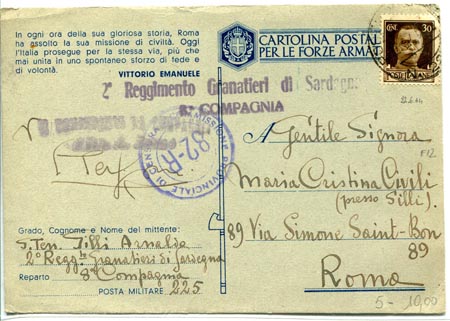 In ogni ora della sua gloriosa storia, Roma
ha assolto la sua missione di civiltà. Oggi
l'Italia prosegue per la stessa via, più che
mai unita in uno spontaneo sforzo di fede e
di volontà.
VITTORIO EMANUELE
CARTOLINA POSTAL
PER LE FORZE ARMAT
CENT. 30
POSTE ITALIANE
2° Reggimento Granatieri di Sardegna
8ª COMPAGNIA
COMMISSIONE PROVINCIALE DI CENSURA
82-R
A Gentile Signora
F12
Maria Cristina Civili
(presso Silli)
89 Via Simone Saint-Bon
89
Roma
Grado, Cognome e Nome del mittente:
S. Ten. Tilli Arnaldo
2° Regg.to Granatieri di Sardegna
Reparto 8ª Compagnia
POSTA MILITARE 225
5- 10,00